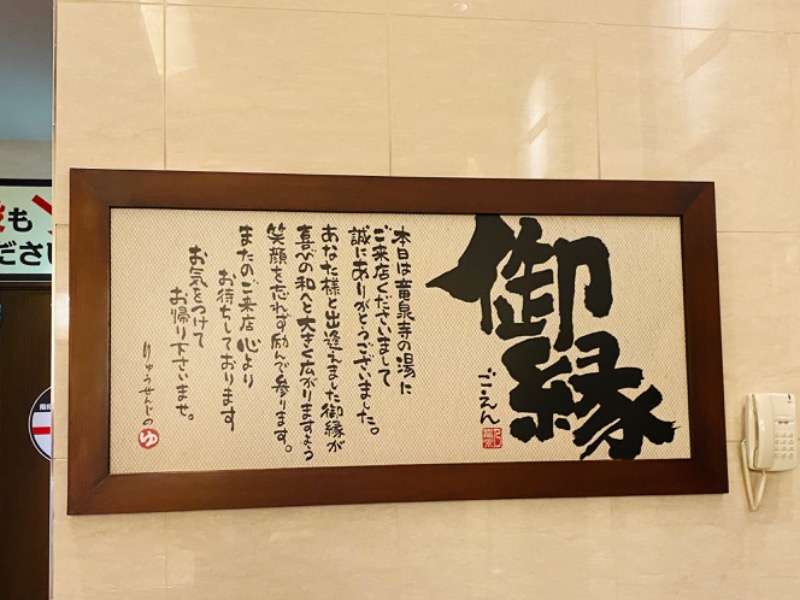 御縁
ごえん
本日は竜泉寺の湯に
ご来店くださいまして
誠にありがとうございました。
あなた様と出逢えました御縁が
喜びの和へと大きく広がりますよう
笑顔を忘れず励んで参ります。
またのご来店 心より
お待ちしております
お気をつけて
お帰り下さいませ。
りゅうせんじのゆ
も
ださい